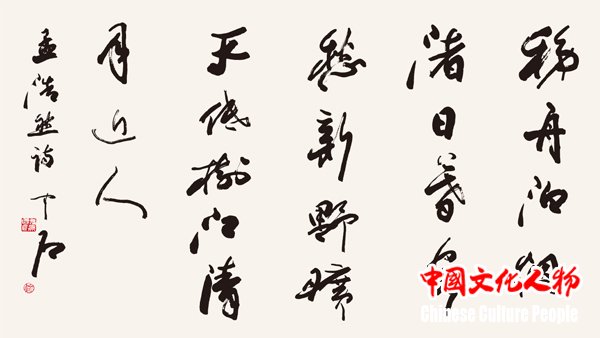 移舟泊烟
渚日暮客
愁新野曠
天低樹江清
月近人
孟浩然詩 中石
中國文化人物
Chinese Culture People